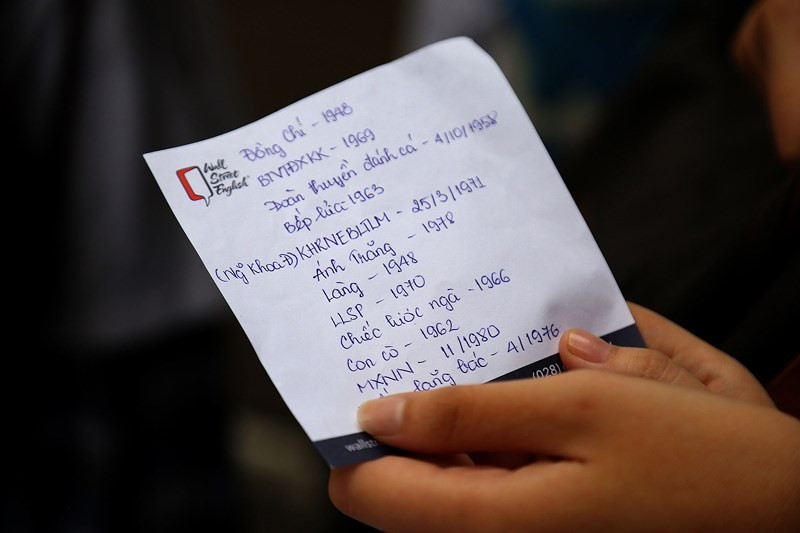 Wall
Street
English
Đồng Chí - 1948
BTVTĐXKK - 1969
Đoàn thuyền đánh cá - 4/10/1958
Bếp lửa - 1963
(Ng̃ Khoa Đ) KHRNEBLTLM - 25/3/1971
Ánh Trăng - 1978
Làng - 1948
LLSP - 1970
Chiếc lược ngà - 1966
Con cò - 1962
MXNN - 11/1980
lăng Bác - 4/1976
(028)
wallst